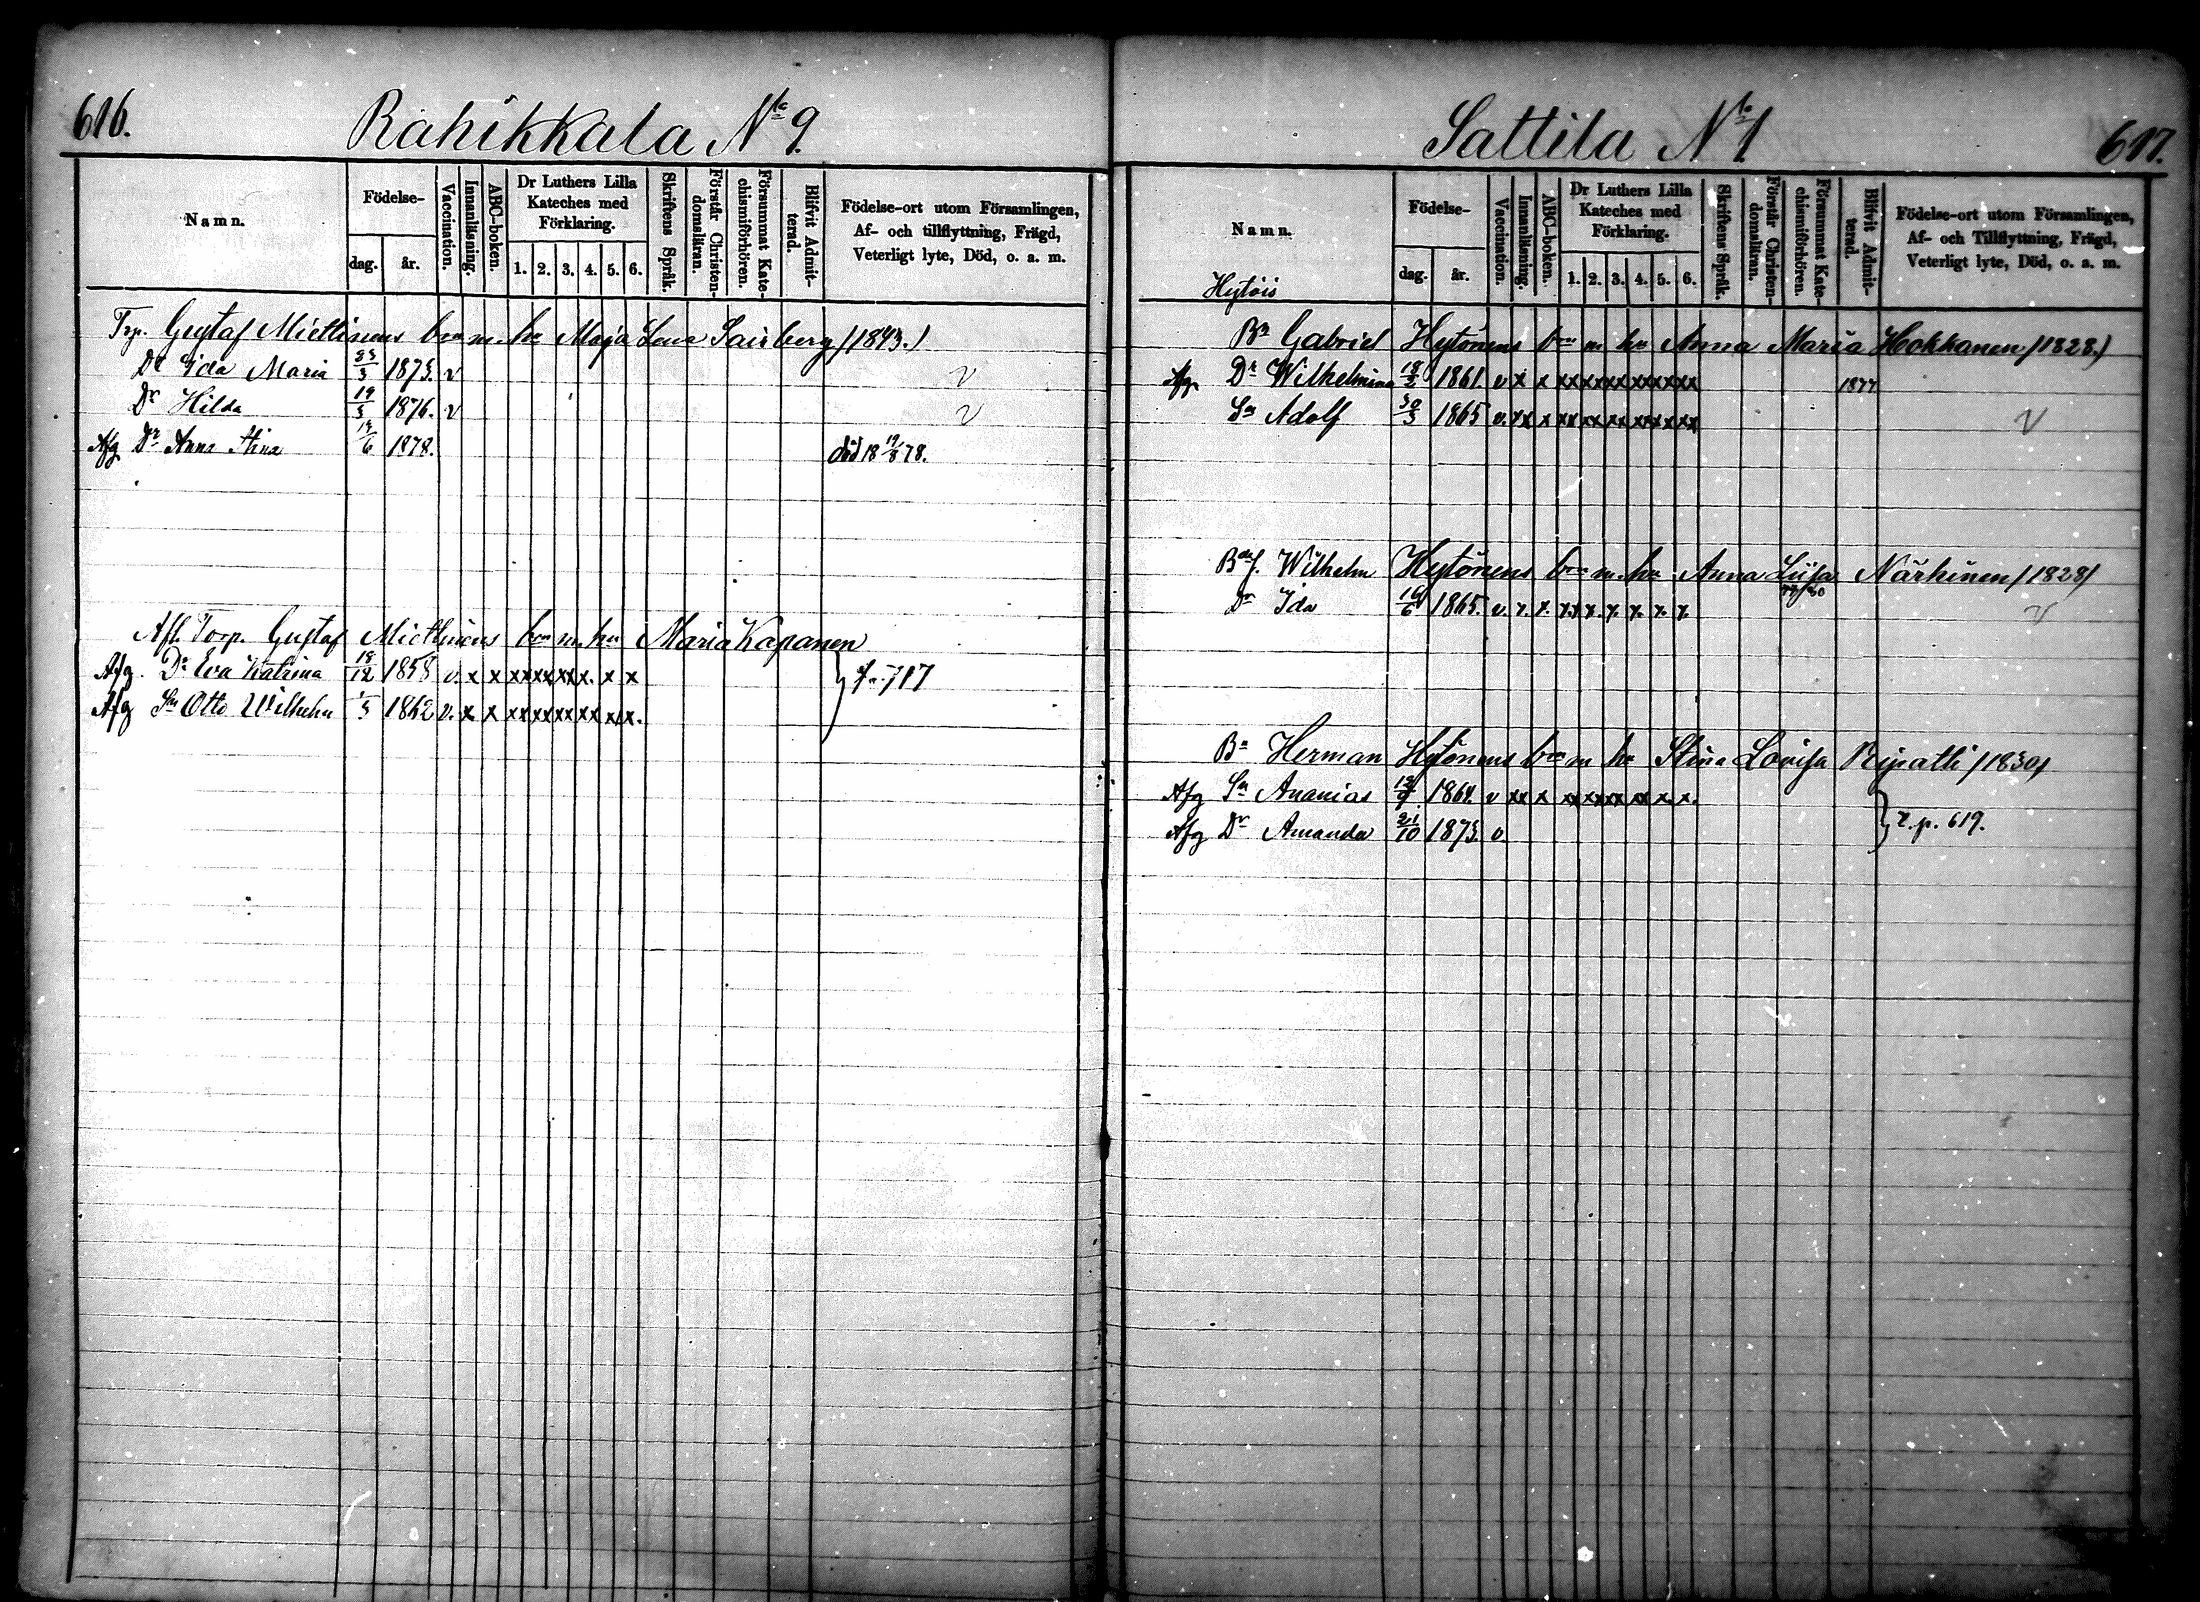 616.
Rahikkala No 9.
Namn.
Födelse-
dag.
år.
Vaccination.
Innanläsning.
ABC-boken.
Dr Luthers Lilla
Kateches med
Förklaring.
1. 2. 3. 4. 5. 6.
Skriftens Språk.
Förstår Christen-
domsläran.
Försummat Kate-
chismiförhören.
Blifvit Admit-
terad.
Födelse-ort utom Församlingen,
Af- och tillflyttning, Frägd,
Veterligt lyte, Död, o. a. m.
Trp. Gustaf Miettinens m. Maja Lena Sairberg /1843./
Dr Ida Maria 23/3 1873. v v
Dr Hilda 19/3 1876. v v
Afg Dr Anna Stina 14/6 1878. död 18 19/8 78.
Afl. Torp. Gustaf Miettinens m. Maria Kapanen
Afg. Dr Eva Katrina 18/12 1858 v. x x x x x x x x. x x
Afg Sn Otto Wilhelm 1862 v. x x x x x x x x x x.
717
Sattila No 1
617.
Namn.
Födelse-
dag.
år.
Vaccination.
Innanläsning.
ABC-boken.
Dr Luthers Lilla
Kateches med
Förklaring.
1. 2. 3. 4. 5. 6.
Skriftens Språk.
Förstår Christen-
domsläran.
Försummat Kate-
chismiförhören.
Blifvit Admit-
terad.
Födelse-ort utom Församlingen,
Af- och Tillflyttning, Frägd,
Veterligt lyte, Död, o. a. m.
Hytöis
Bn Gabriel Hytönens m Anna Maria Hokkanen /1828./
Afg. Dr Wilhelmina 18/3 1861. v x x xxxxxxxxxxxx 1877
Sn Adolf 30/3 1865 v. xx x xxxxxxxxxxx v
Wilhelm Hytönens m. Anna Liisa Närhinen /1828/
Dr Ida 16/6 1865. v. x. x. x x x. x. x. x. x. v
Bn Herman Hytönens m Stina Lovisa /1830/
Afg Sn Ananias 1864. v xx x xxxxxxx x. x.
Afg Dr Amanda 21/10 1873. v.
p. 619.